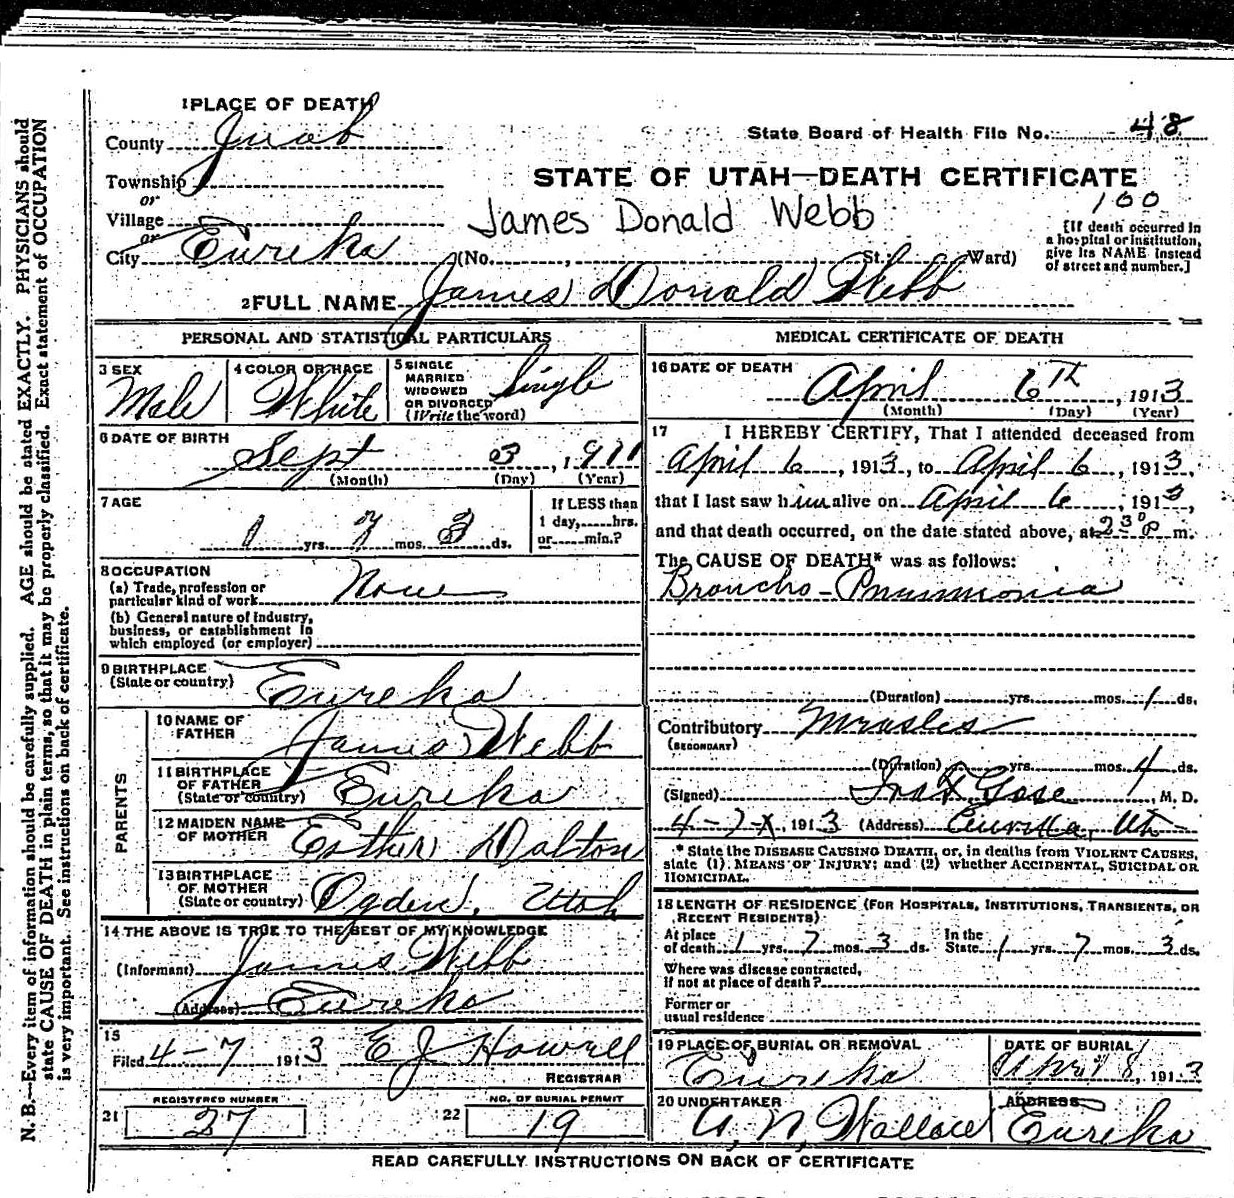 1 PLACE OF DEATH
County Juab
State Board of Health File No. 48
Township
or
Village
or
City Eureka
STATE OF UTAH—DEATH CERTIFICATE
100
James Donald Webb
(No. , St. Ward)
[If death occurred in
a hospital or institution,
give its NAME instead
of street and number.]
2 FULL NAME James Donald Webb
PERSONAL AND STATISTICAL PARTICULARS
3 SEX
Male
4 COLOR OR RACE
White
5 SINGLE
MARRIED
WIDOWED
OR DIVORCED
(Write the word)
Single
6 DATE OF BIRTH
Sept 3, 1911
(Month) (Day) (Year)
7 AGE
1 yrs. 7 mos. 3 ds.
If LESS than
1 day, hrs.
or min.?
8 OCCUPATION
(a) Trade, profession or
particular kind of work None
(b) General nature of industry,
business, or establishment in
which employed (or employer)
9 BIRTHPLACE
(State or country) Eureka
PARENTS
10 NAME OF
FATHER James Webb
11 BIRTHPLACE
OF FATHER
(State or country) Eureka
12 MAIDEN NAME
OF MOTHER Esther Dalton
13 BIRTHPLACE
OF MOTHER
(State or country) Ogden, Utah
14 THE ABOVE IS TRUE TO THE BEST OF MY KNOWLEDGE
(Informant) James Webb
(Address) Eureka
15
Filed 4-7 1913 E J Howell
REGISTRAR
REGISTERED NUMBER
21 27
NO. OF BURIAL PERMIT
22 19
MEDICAL CERTIFICATE OF DEATH
16 DATE OF DEATH
April 6TH, 1913
(Month) (Day) (Year)
17 I HEREBY CERTIFY, That I attended deceased from
April 6, 1913, to April 6, 1913
that I last saw him alive on April 6, 1913,
and that death occurred, on the date stated above, at 2 30 P m.
The CAUSE OF DEATH* was as follows:
Broncho-Pneumonia
(Duration) yrs. mos. 1 ds.
Contributory Measles
(SECONDARY)
(Duration) yrs. mos. 4 ds.
(Signed) M. D.
4-7, 1913 (Address) Eureka, Ut
* State the DISEASE CAUSING DEATH, or, in deaths from VIOLENT CAUSES,
state (1) MEANS OF INJURY; and (2) whether ACCIDENTAL, SUICIDAL OR
HOMICIDAL.
18 LENGTH OF RESIDENCE (FOR HOSPITALS, INSTITUTIONS, TRANSIENTS, OR
RECENT RESIDENTS)
At place
of death 1 yrs. 7 mos. 3 ds. In the
State 1 yrs. 7 mos. 3 ds.
Where was disease contracted,
if not at place of death?
Former or
usual residence
19 PLACE OF BURIAL OR REMOVAL
Eureka
DATE OF BURIAL
April 8, 1913
20 UNDERTAKER
A. N. Wallace
ADDRESS
Eureka
READ CAREFULLY INSTRUCTIONS ON BACK OF CERTIFICATE
N. B.—Every item of information should be carefully supplied. AGE should be stated EXACTLY. PHYSICIANS should
state CAUSE OF DEATH in plain terms, so that it may be properly classified. Exact statement of OCCUPATION
is very important. See instructions on back of certificate.